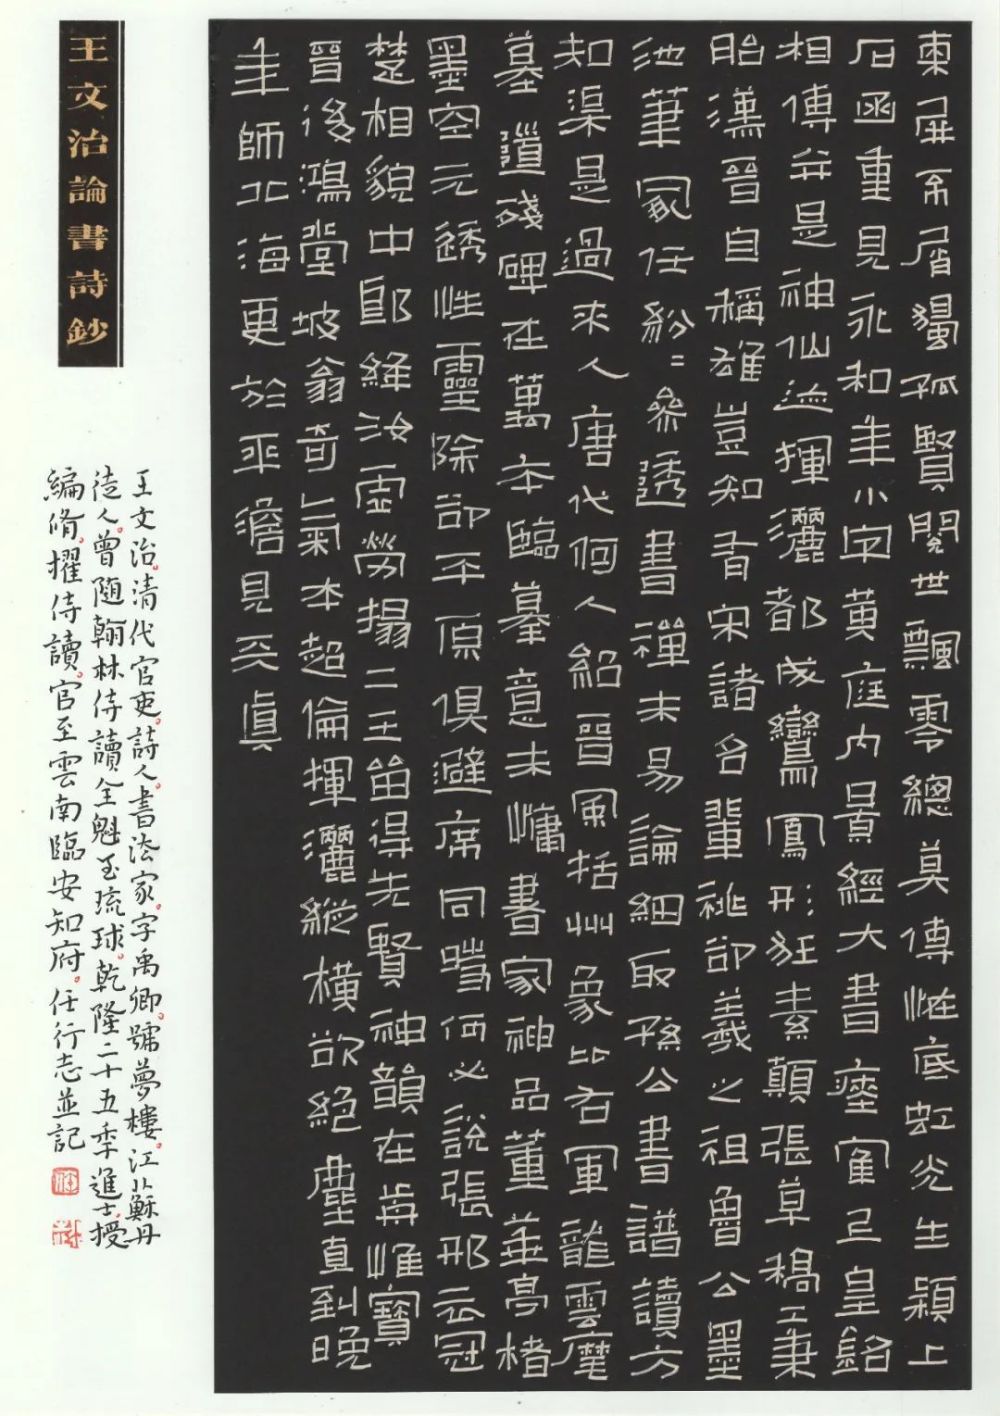 東屏不屑獨孤賢閱世飄零總莫傳怪底虹光生潁上
石函重見永和年小字黃庭內景經大書瘞隺上皇銘
相傳并是神仙迹揮灑都成鸞鳳形狂素顛張草稿工兼
貽漢晉自稱雄豈知有宋諸名輩祧卻羲之祖魯公墨
池筆冢任紛紛參透書禪未易論細取孫公書譜讀方
知渠是過來人唐代何人紹晉風括州象比右軍龍雲麾
墓道殘碑在萬本臨摹意未慵書家神品董華亭楮
墨空元透性靈除卻平原俱避席同時何必說張邢衣冠
楚相貌中郎絳汝虛勞搨二王留得先賢神韻在惟寶
晉後鴻堂坡翁奇氣本超倫揮灑縱橫欲絕塵直到晚
年師北海更於平澹見天真
王文治論書詩鈔
王文治。清代官吏。詩人。書法家。字禹卿。號夢樓。江蘇丹
徒人。曾隨翰林侍讀全魁至琉球。乾隆二十五年進士。授
編脩。擢侍讀。官至雲南臨安知府。任行志並記